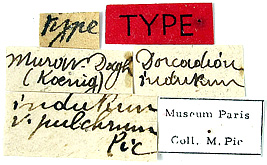 type
TYPE
Murat Dagh
(Koenig)
Dorcadion
indutum
indutum
v. pulchrum
Pic
Museum Paris
Coll. M. Pic